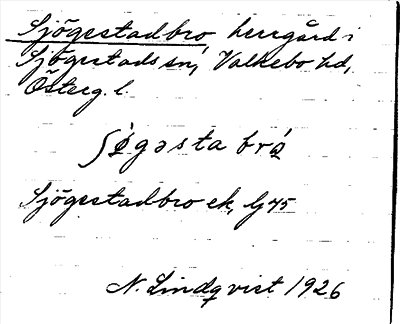 Sjögestadbro herrgård i
Sjögestads sn, Valkebo hd,
Österg. l.
ʃǿgəsta brǫ́
Sjögestadbro ek, Gj 45
N. Lindqvist 1926